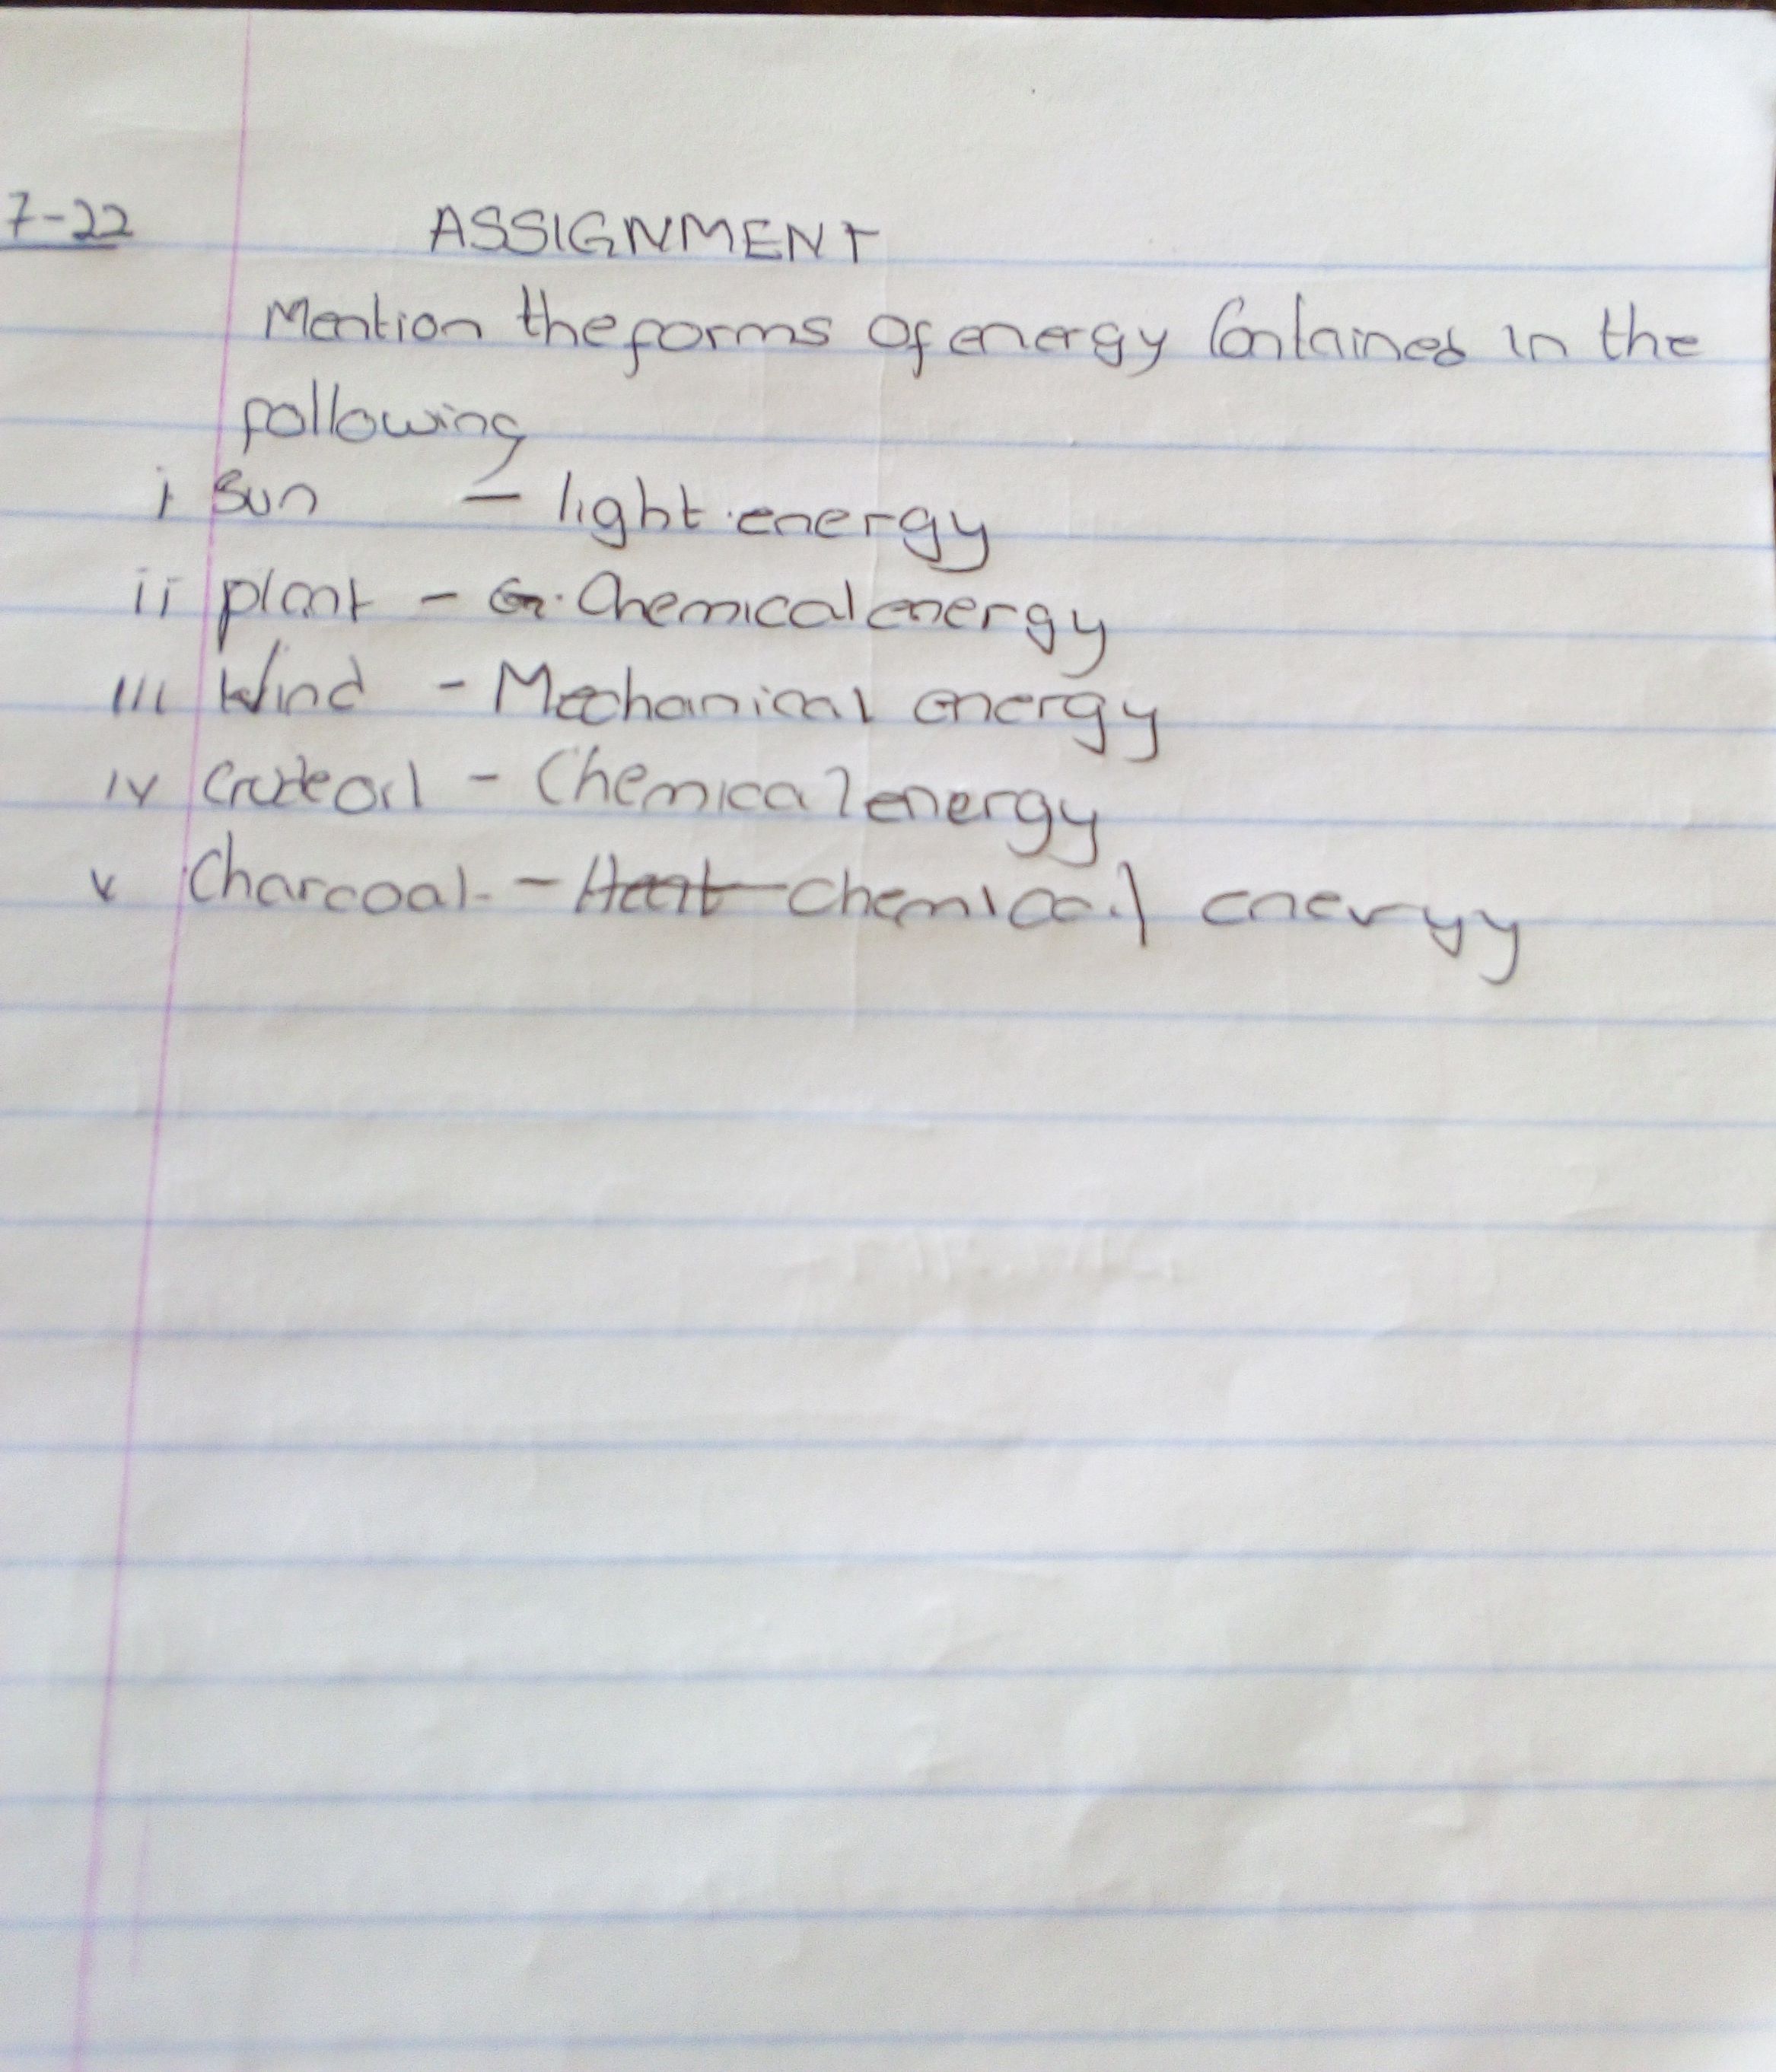 7-22 ASSIGNMENT
Mention the forms of energy Contained in the
following
i Sun - light energy
ii plant - Chemical energy
iii Wind - Mechanical energy
iv Crude oil - Chemical energy
v Charcoal - Heat chemical energy